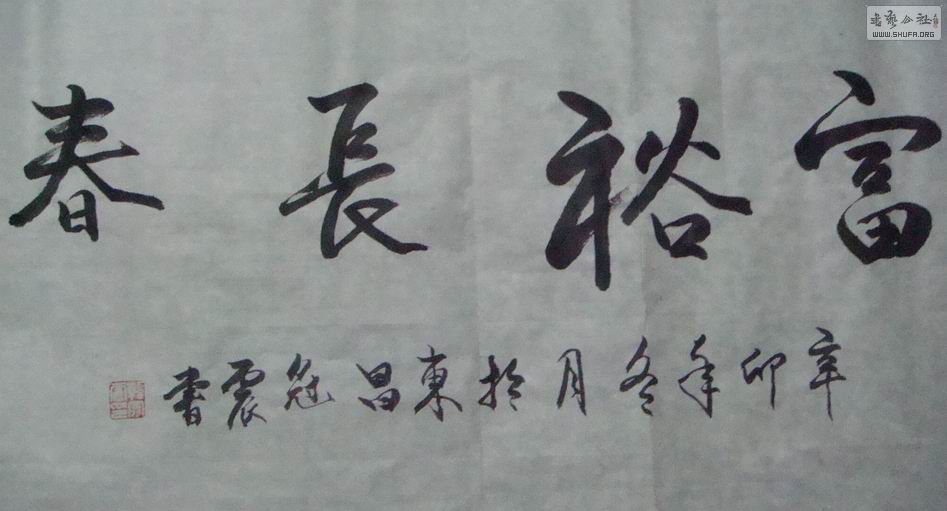 富裕長春
辛卯年冬月於東昌冠震書
書藝公社
WWW.SHUFA.ORG